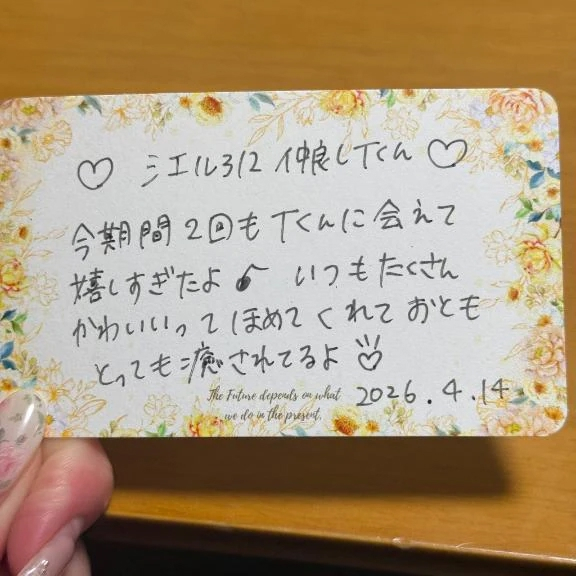 ♡ シエル312 仲良しTくん ♡
今期間2回もTくんに会えて
嬉しすぎたよ♪ いつもたくさん
かわいいってほめてくれておとも
とっても癒されてるよ♡
The Future depends on what
we do in the present.
2026.4.14